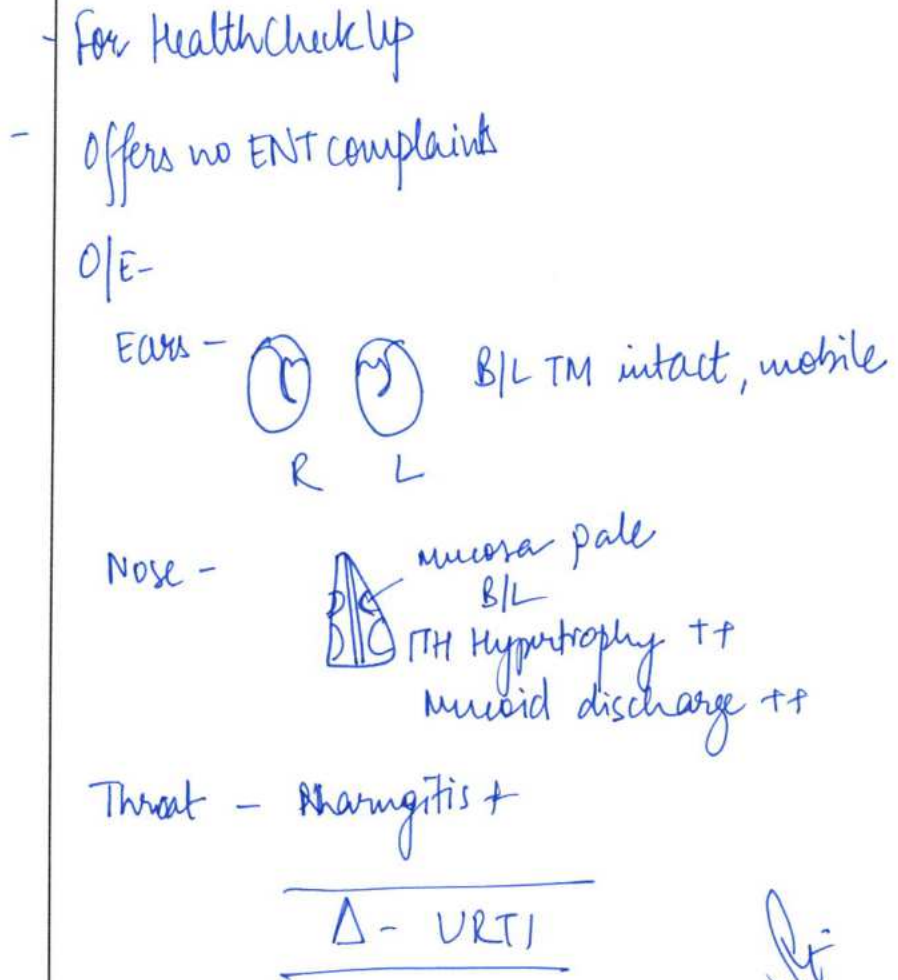 - For Health Check Up
- Offers no ENT complaints
O/E-
Ears -
B/L TM intact, mobile
R L
Nose -
mucosa pale
B/L
ITH Hypertrophy ++
Mucoid discharge ++
Throat - Pharngitis +
Δ - URTI